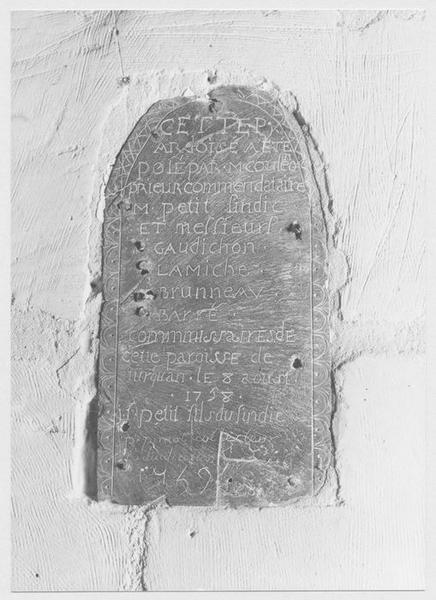 CETTE P
ARDOISE A ETE
POLE PAR M COULEO
PRIEUR COMMENDATAIRE
M petit sindic
ET messieurs
GAUDICHON
LAMICHE
BRUNNEAU
BARRE
COMMISSAIRES DE
cette paroisse de
LE 8 aoust
1758
petit fils du sindic